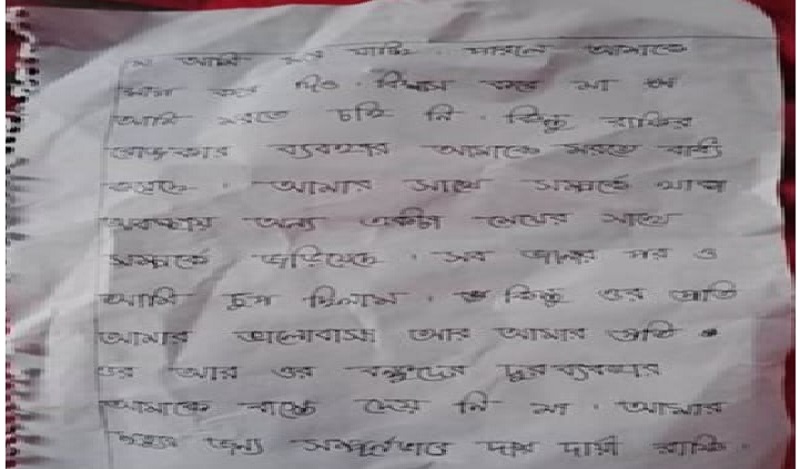 মা আমি চলে যাচ্ছি । পারলে আমাকে
মাফ করে দিও । বিশ্বাস করো মা
আমি মরতে চাই নি । কিন্তু রাকিব
ব্যবহার আমাকে মরতে বাধ্য
করছে । আমার সাথে সম্পর্কে থাকা
অবস্থায় অন্য একটা মেয়ের সাথে
সম্পর্কে জড়িয়েছে । সব জানার পর ও
আমি চুপ ছিলাম । কিন্তু ওর প্রতি
আমার ভালোবাসা আর আমার প্রতি
ওর আর ওর বন্ধুদের দুরব্যবহার
আমাকে বাচতে দেয় নি মা । আমার
জন্য সম্পূর্নভাবে দায় দায়ী